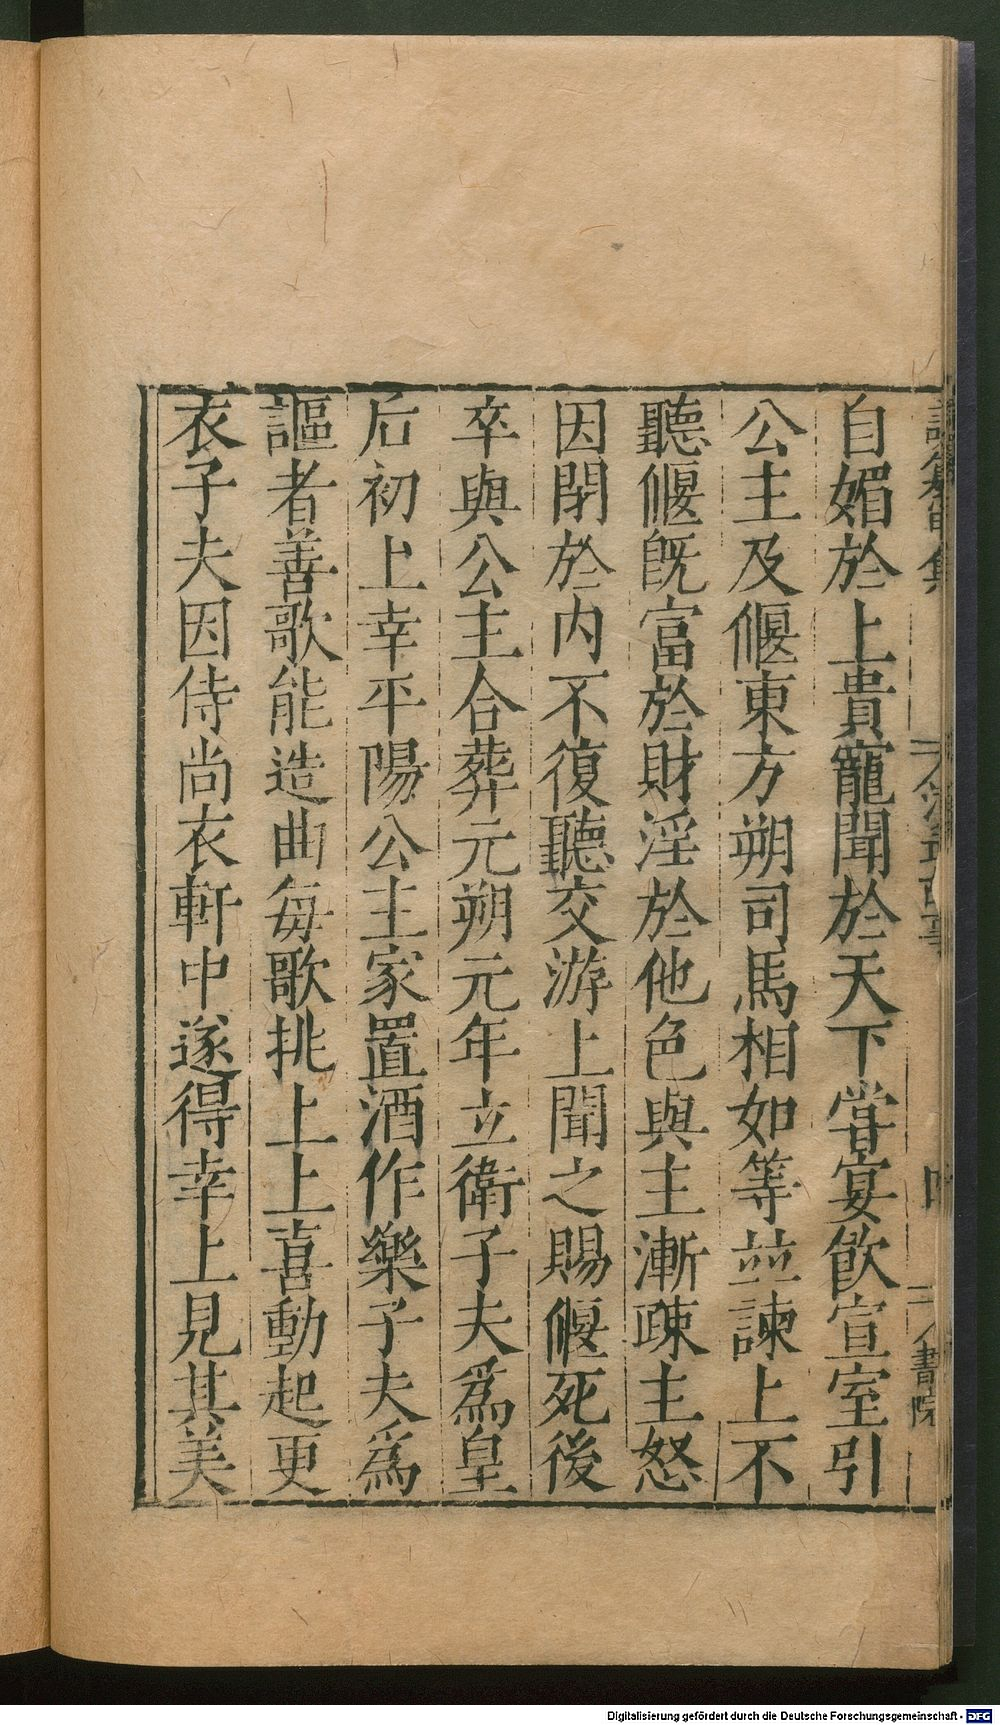 自媚於上貴寵聞於天下甞宴飮宣室引
公主及偃東方朔司馬相如等並諫上不
聽偃旣富於財淫於他色與主漸疎主怒
因閉於内不復聽交游上聞之賜偃死後
卒與公主合葬元朔元年立衛子夫爲皇
后初上幸平陽公主家置酒作樂子夫爲
謳者善歌能造曲毎歌挑上上喜動起更
衣子夫因侍尚衣軒中遂得幸上見其美
書院
Digitalisierung gefördert durch die Deutsche Forschungsgemeinschaft - DFG